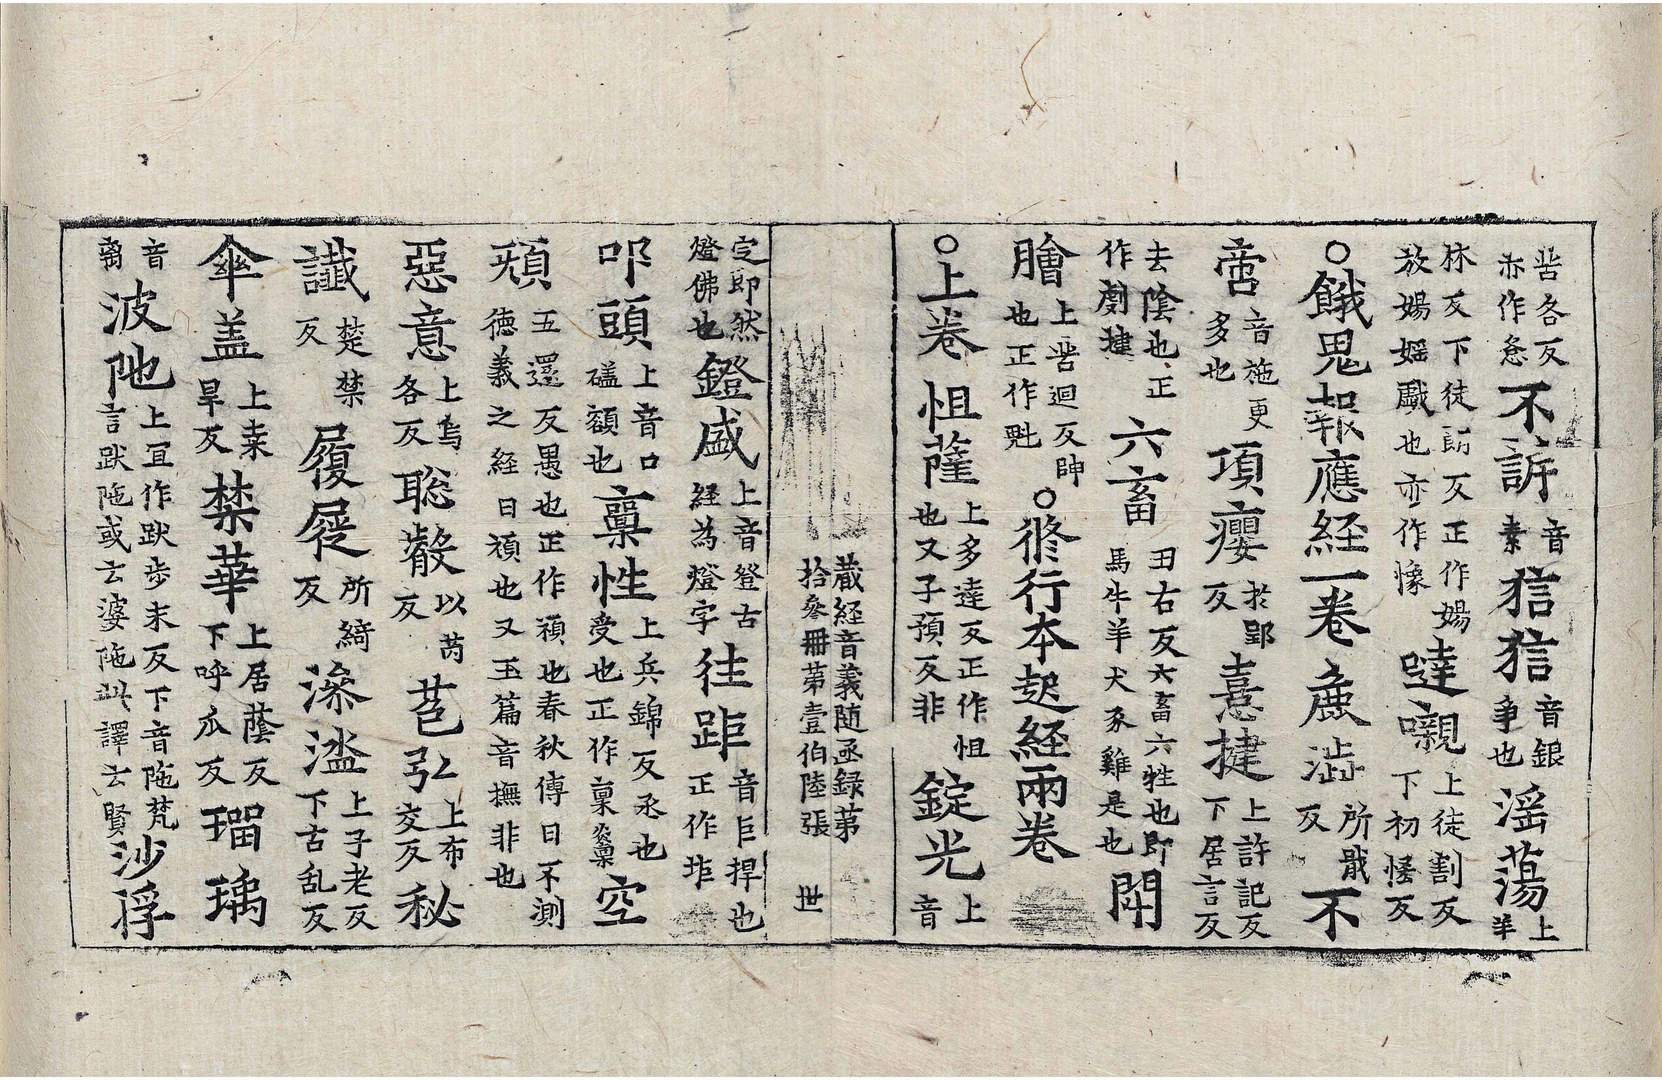 苦各反亦作㤩不訴音素狺狺音銀争也滛蕩上羊
林反下徒訪反正作婸放婸婬戱也亦作愓噠嚫上徒割反下初㥽反
○餓鬼報應経一卷麁澁所戢反不
啻音施更多也項癭於郢反憙揵上許記反下居言反
去陰也正作劇揵六畜田右反六畜六牲也即馬牛羊犬豕雞是也閗
膾上苦迴反帥也正作魁○修行本起経兩卷
○上卷怚薩上多達反正作怛也又子預反非錠光上音
蔵経音義随函録第
拾叄冊第壹伯陸張 世
定即然燈佛也鐙盛上音登古経為燈字徃歫音巨捍也正作歫
叩頭上音口磕額也稟性上兵錦反丞也受也正作稟空
頑五還反愚也正作頑也春秋傳曰不測德義之経曰頑也又玉篇音撫非也
惡意上烏各反聡叡以芮反苞弘上布交反秘
讖楚禁反履屣所綺反澡盥上子老反下古乱反
傘盖上桒旱反禁華上居蔭反下呼瓜反瑠璃
音离波阤上宜作跋步末反下音陁梵言跋陁或云婆陁此譯云賢沙浮